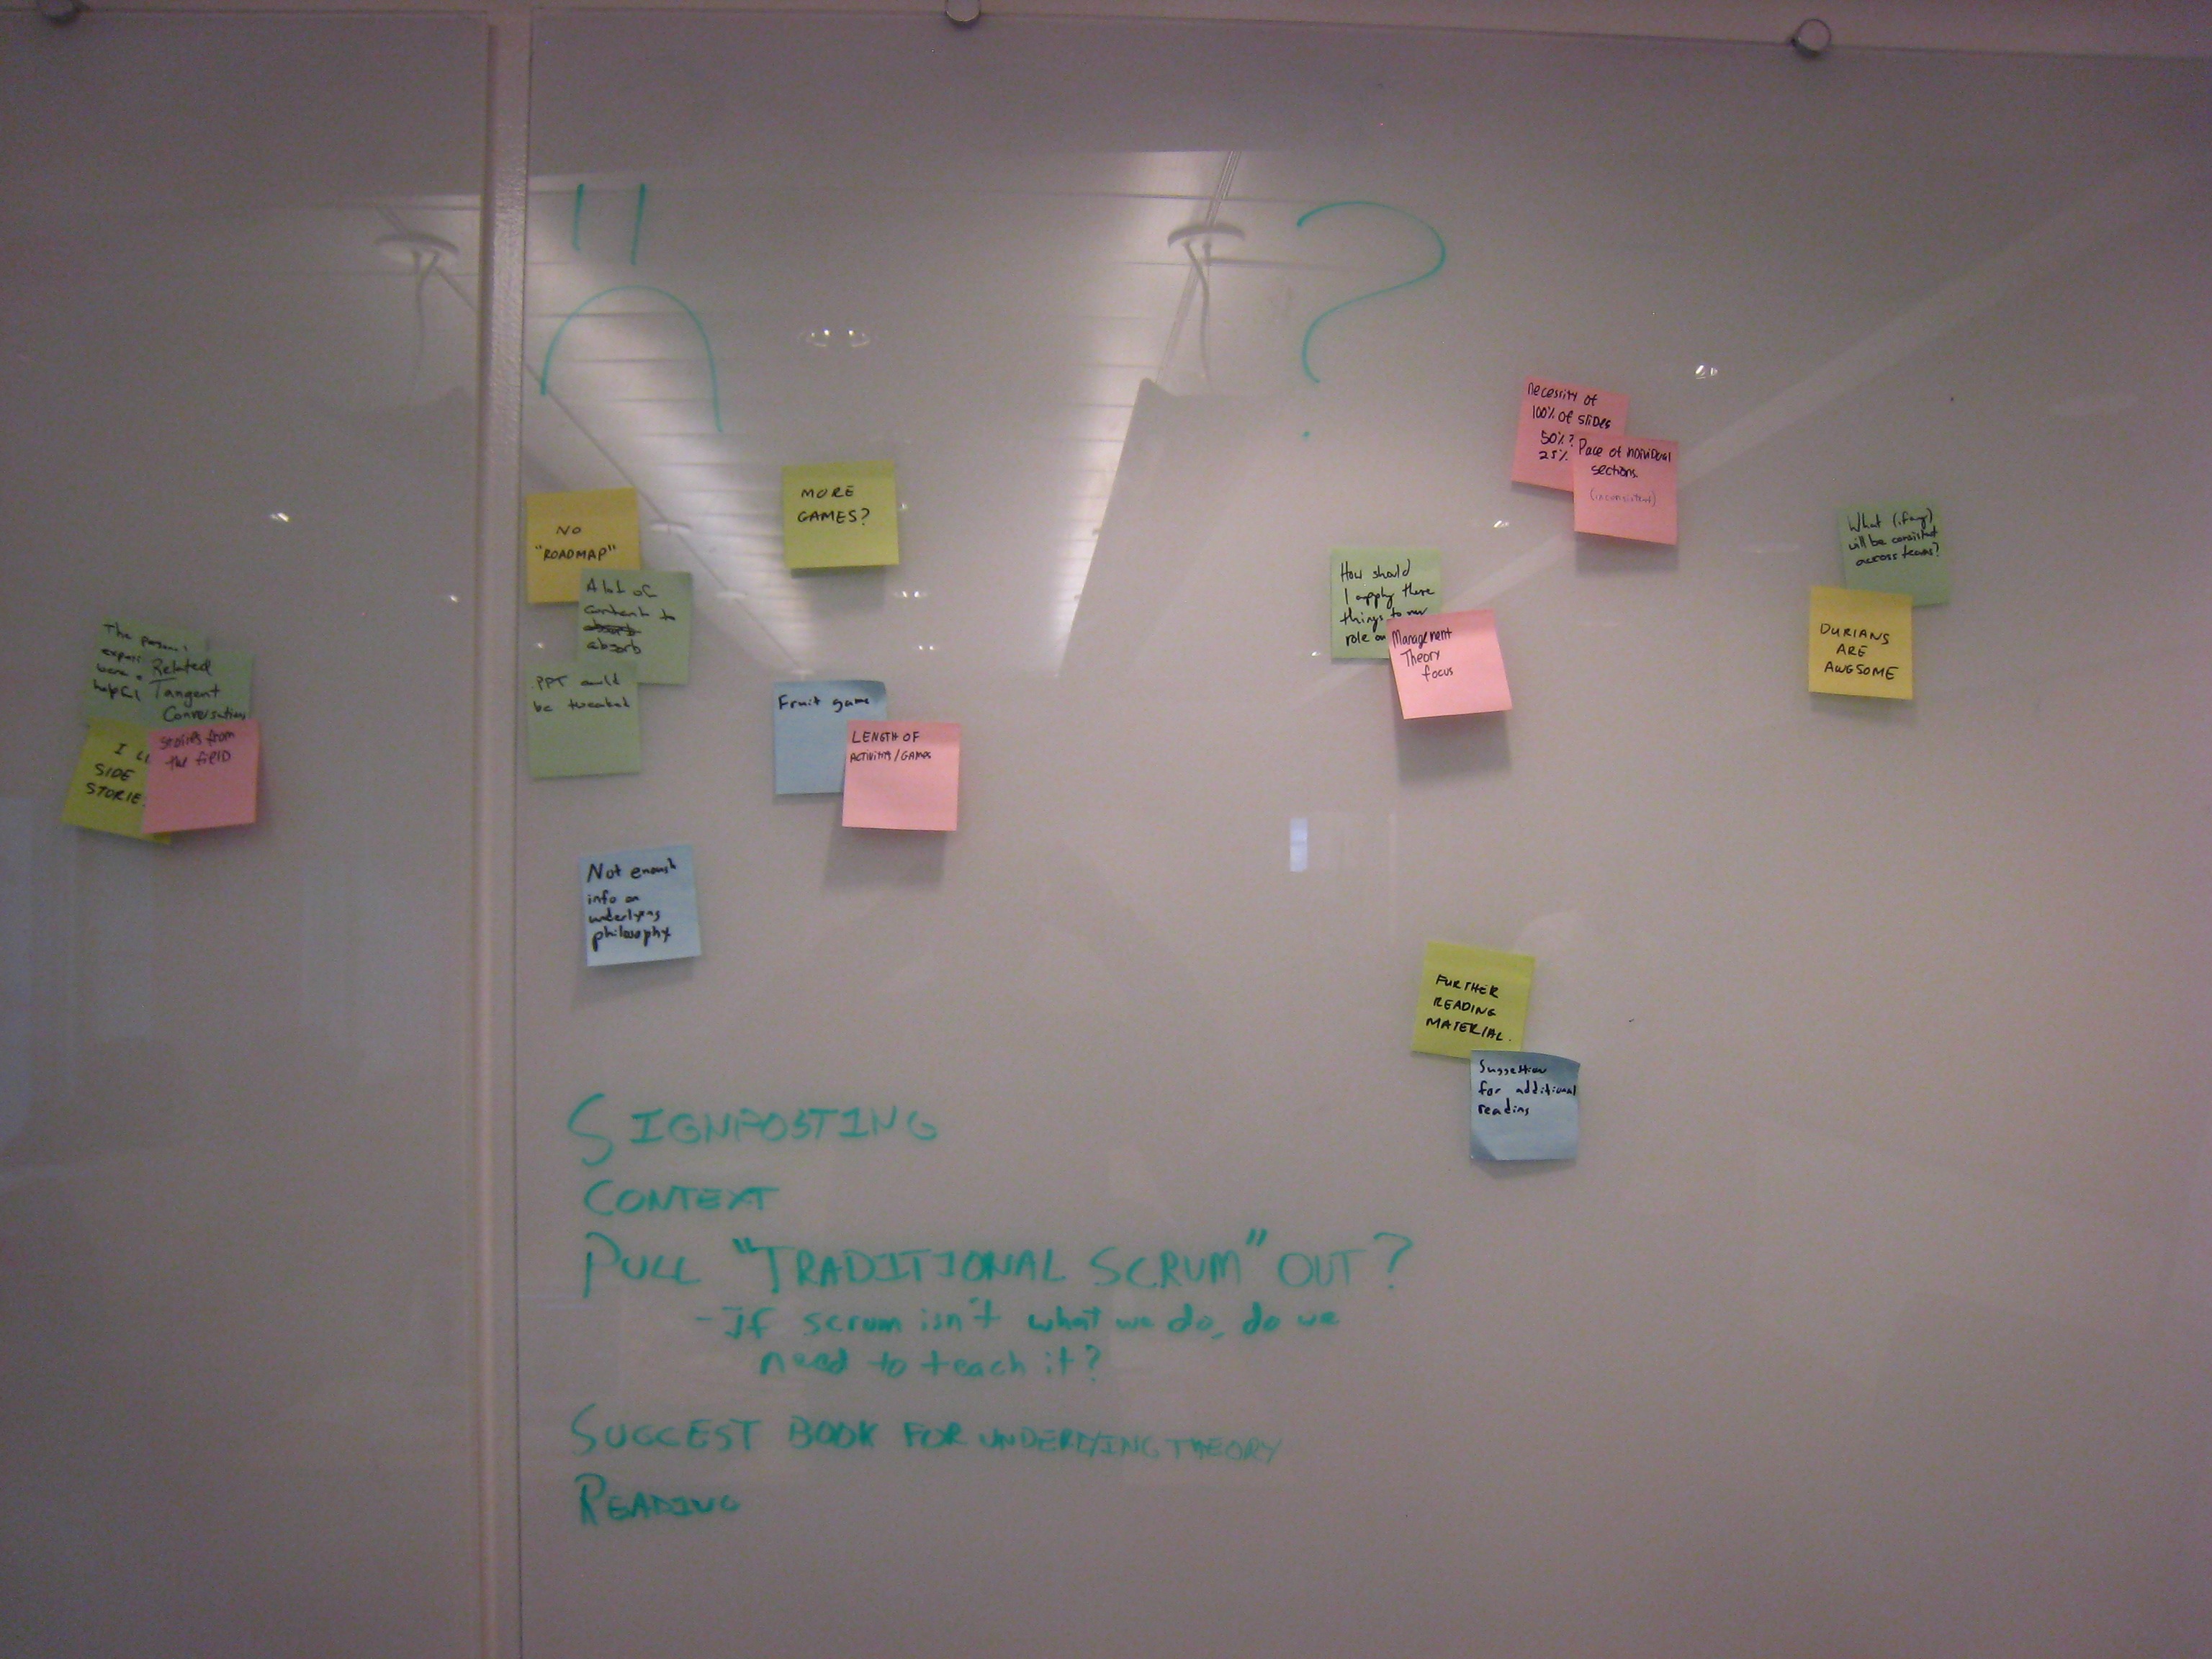 The
were
helpful
Related
Tangent
Conversations
I
SIDE
STORIE
Stories from
the fielD
NO
"ROADMAP"
A lot of
content to
absorb
PPT could
be tweaked
MORE
GAMES?
Fruit game
LENGTH OF
ACTIVITIES/GAMES
Not enough
info on
underlying
philosophy
?
necessity of
100% of sliDes
50%?
25%
Pace of inDiviDual
sections
(inconsistent)
How should
I apply these
things to my
role
Management
Theory
focus
What (if any)
will be consistent
across teams?
DURIANS
ARE
AWESOME
FURTHER
READING
MATERIAL.
Suggestion
for additional
reading
SIGNPOSTING
CONTEXT
PULL "TRADITIONAL SCRUM" OUT?
- If scrum isn't what we do, do we
need to teach it?
SUGGEST BOOK FOR UNDERLYING THEORY
READING